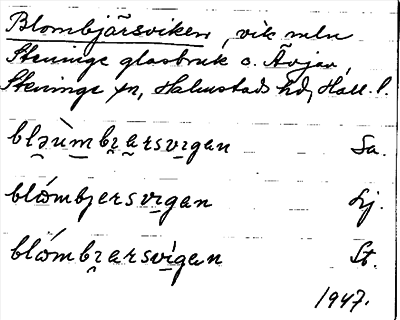 Blombjärsviken, vik mln
Steninge glasbruk o. Ävjan,
Steninge sn, Halmstads hd, Hall. l.
blə̯ùm̯bi̯a̯rsvı̱gan Sa.
blómbjersvı̱gan Lj.
blómbi̯arsvı̱́gan St.
1947.